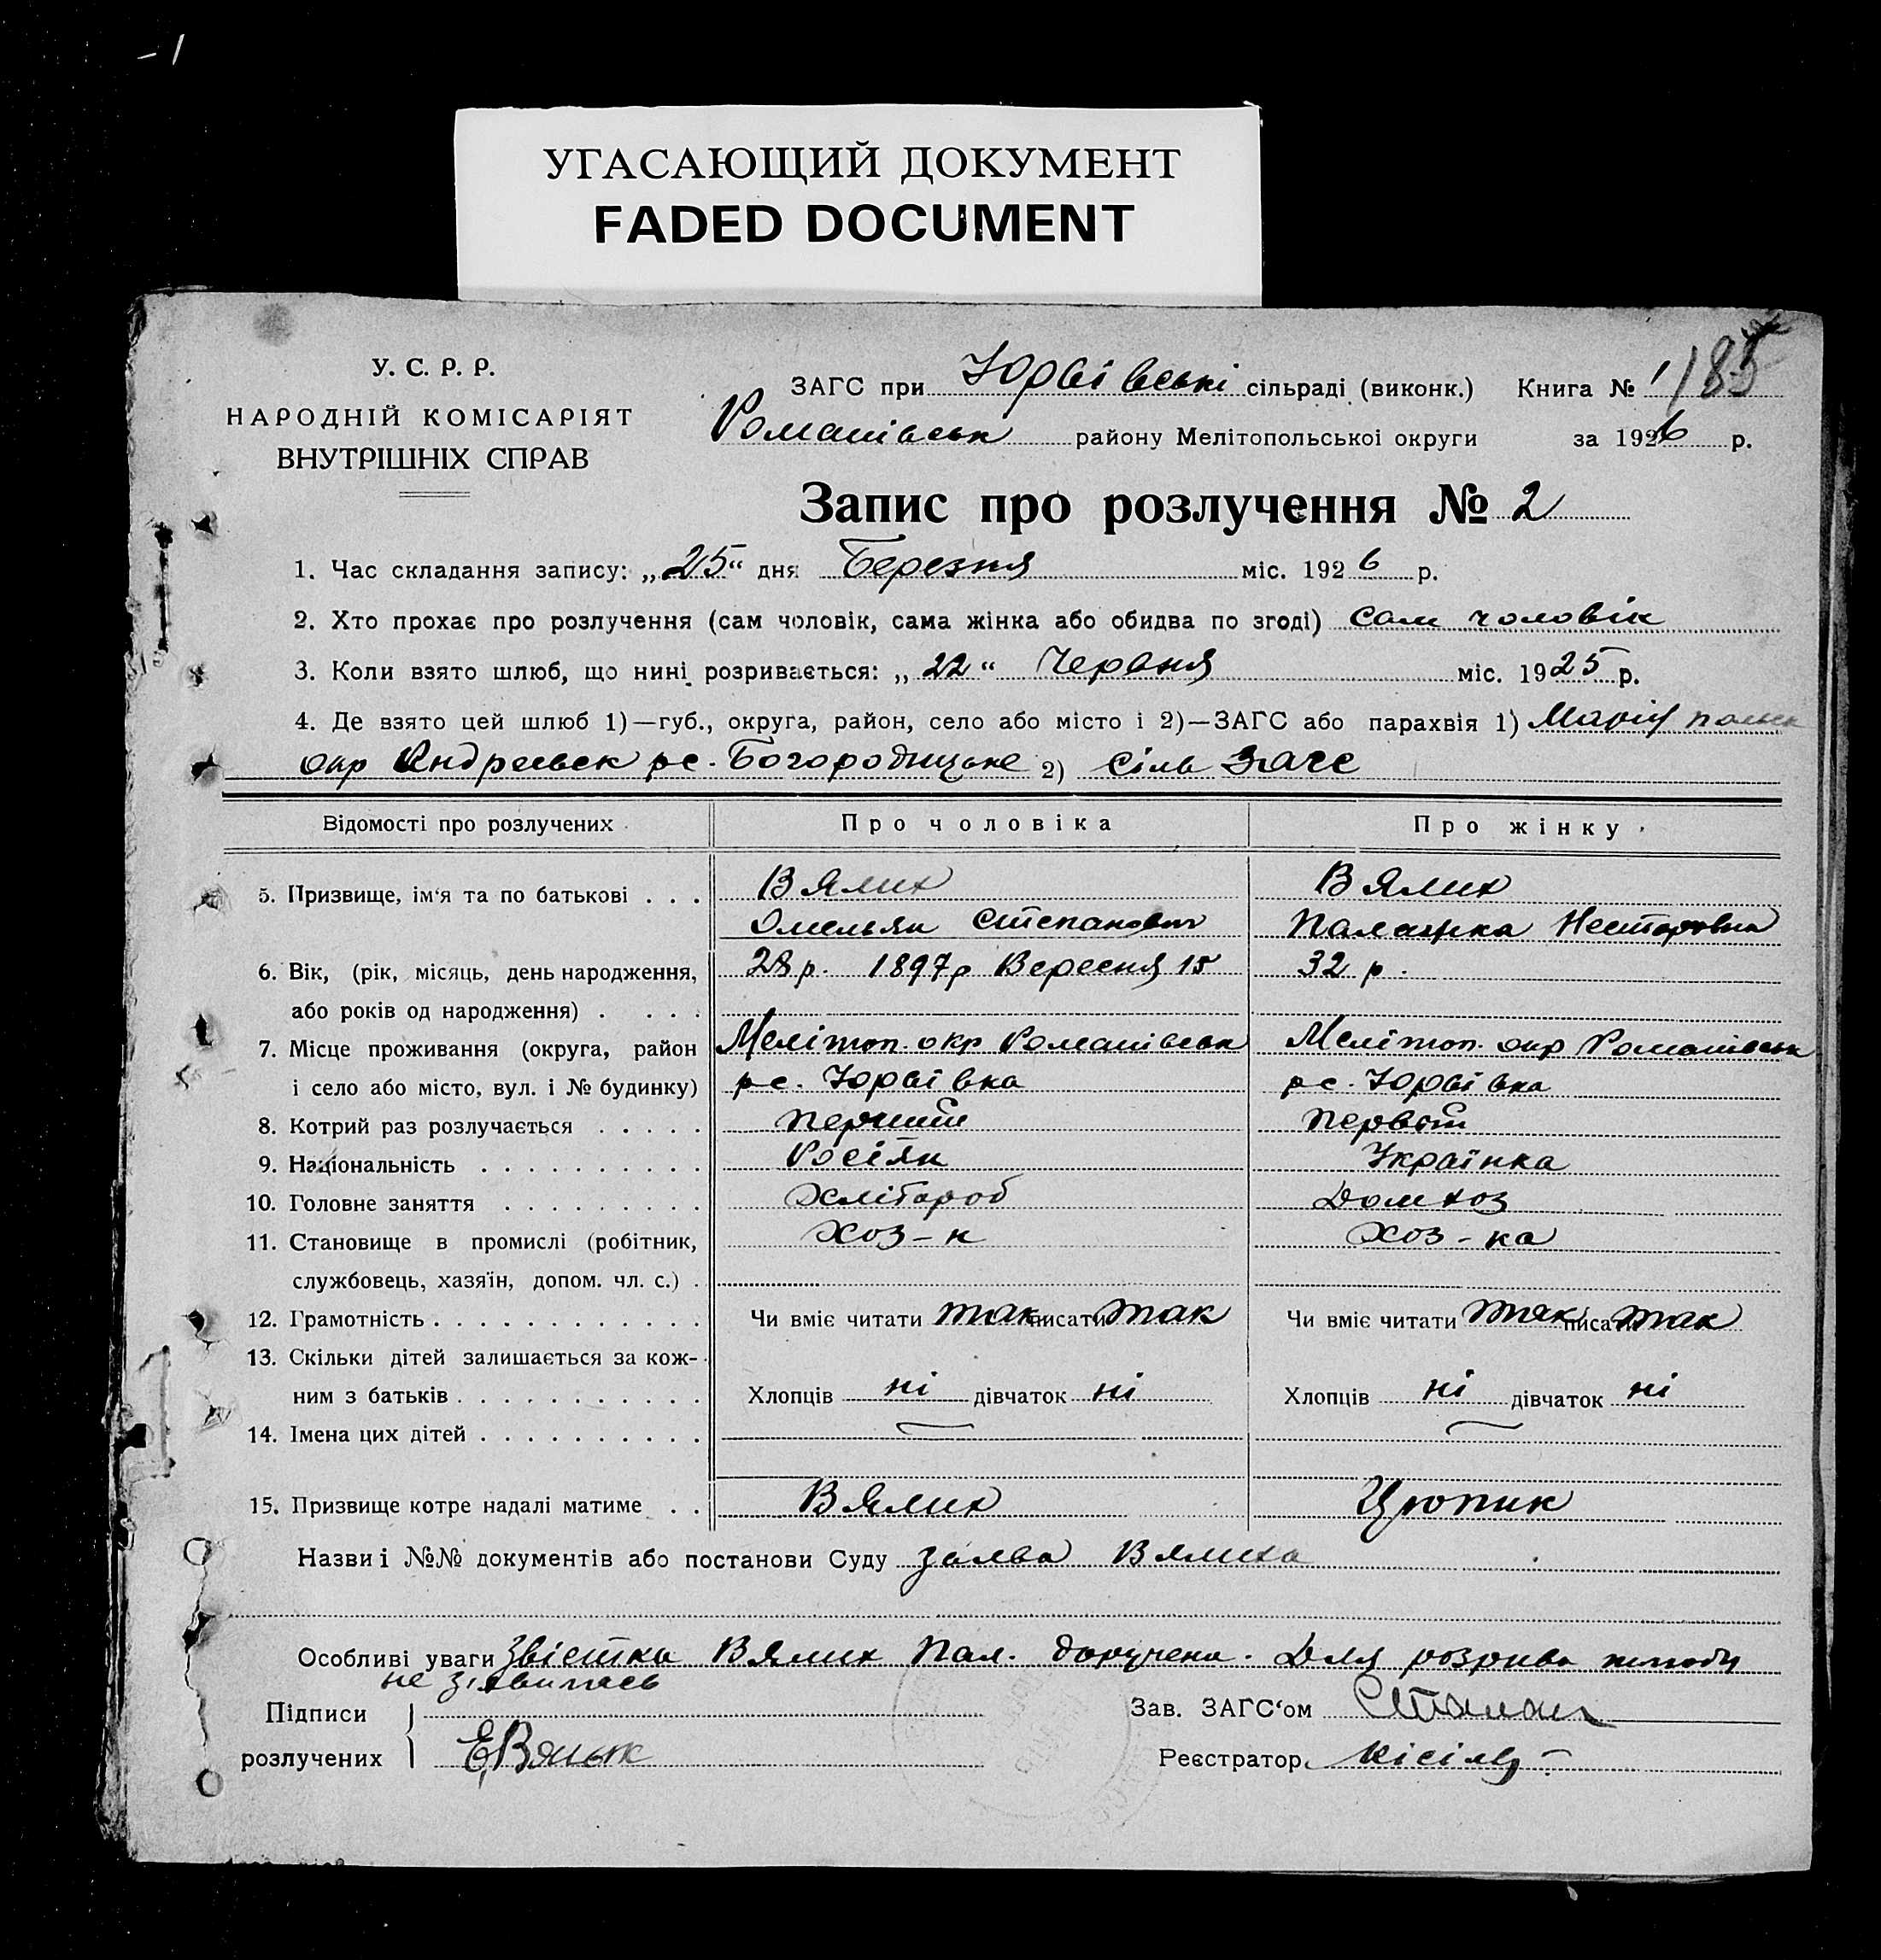 - 1
УГАСАЮЩИЙ ДОКУМЕНТ
FADED DOCUMENT
У. С. Р. Р.
НАРОДНІЙ КОМІСАРІЯТ
ВНУТРІШНІХ СПРАВ
ЗАГС при Юрвівські сільраді (виконк.) Книга № 1 185
Романівськ району Мелітопольської округи за 1926 р.
Запис про розлучення № 2
1. Час складання запису: „25“ дня Березня міс. 1926 р.
2. Хто прохає про розлучення (сам чоловік, сама жінка або обидва по згоді) сам чоловік
3. Коли взято шлюб, що нині розривається: „22“ Червня міс. 1925 р.
4. Де взято цей шлюб 1)—губ., округа, район, село або місто і 2)—ЗАГС або парахвія 1) Маріупольск
окр Андреевск рс. Богородицьке 2) Сіль Загс
Відомості про розлучених Про чоловіка Про жінку
5. Призвище, ім‘я та по батькові . . . Вялих Вялих
Омельян Степанович Палажка Несторовна
6. Вік, (рік, місяць, день народження, 28 р. 1897 р Вересня 15 32 р.
або років од народження) . . . .
7. Місце проживання (округа, район Мелітоп. окр Романівськ Мелітоп. окр Романівськ
і село або місто, вул. і № будинку) рс. Юрвівка рс. Юрвівка
8. Котрий раз розлучається . . . . . перший первый
9. Національність . . . . . . . . . . Росіян Українка
10. Головне заняття . . . . . . . . . Хлібороб Домхоз
11. Становище в промислі (робітник, Хоз-н Хоз-ка
службовець, хазяїн, допом. чл. с.) .
12. Грамотність . . . . . . . . . . . . Чи вміє читати так писати так Чи вміє читати так писати так
13. Скільки дітей залишається за кож-
ним з батьків . . . . . . . . . . . Хлопців ні дівчаток ні Хлопців ні дівчаток ні
14. Імена цих дітей . . . . . . . . . . — —
15. Призвище котре надалі матиме . . Вялих Цюпик
Назви і №№ документів або постанови Суду заява Вялиха
Особливі уваги Звістка Вялих Пал. доручена. Для розрива шлюбу
не зявилась
Підписи Зав. ЗАГС‘ом
розлучених Е.Вялых Реєстратор